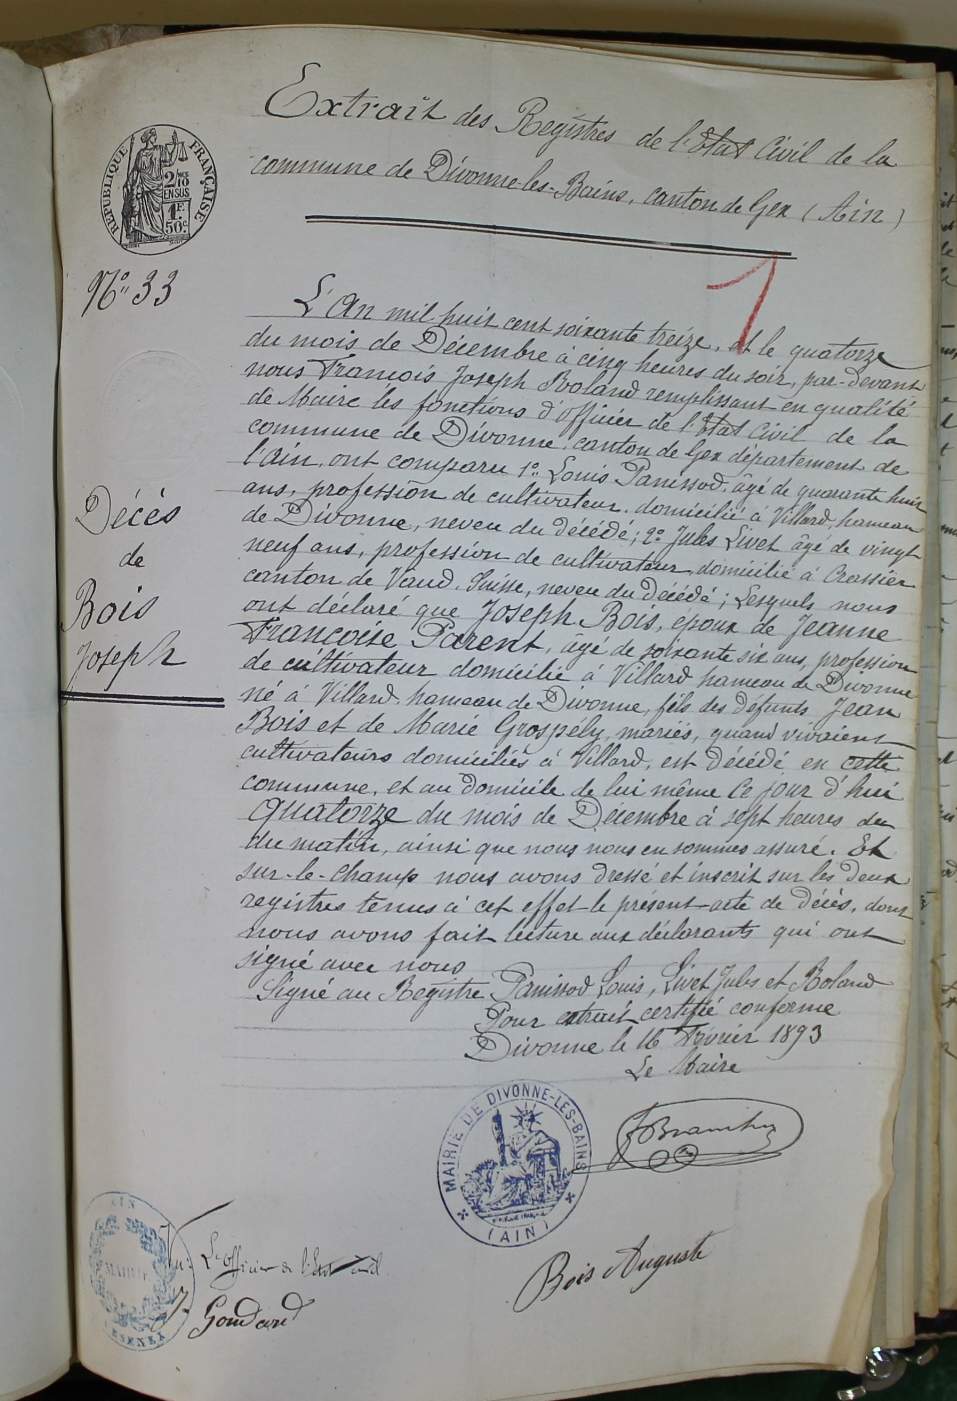 Extrait des Registres de l'Etat Civil de la
commune de Divonne-les-Bains, canton de Gex (Ain)
RÉPUBLIQUE FRANÇAISE
2/10
EN SUS
1F
50c
1
No 33
L'An mil huit cent soixante treize, et le quatorze
du mois de Décembre à cinq heures du soir, par-devant
nous François Joseph Roland remplissant en qualité
de Maire les fonctions d'officier de l'Etat Civil de la
commune de Divonne, canton de Gex département de
l'ain, ont comparu 1o Louis Panissod, agé de quarante huit
ans, profession de cultivateur, domicilié à Villard, hameau
de Divonne, neveu du décédé; 2o Jules Livet âgé de vingt
neuf ans, profession de cultivateur domicilié à Crassier
canton de Vaud, Suisse, neveu du décédé; Lesquels nous
ont déclaré que Joseph Bois, époux de Jeanne
Françoise Parent, âgé de soixante six ans, profession
de cultivateur domicilié à Villard hameau de Divonne
né à Villard, hameau de Divonne, fils des défunts Jean
Bois et de Marie Grospély, mariés, quand vivaient
cultivateurs domiciliés à Villard, est décédé en cette
commune, et au domicile de lui même ce jour d'hui
quatorze du mois de Décembre à sept heures du
du matin, ainsi que nous nous en sommes assuré. Et
sur-le-champ nous avons dressé et inscrit sur les deux
registres tenus à cet effet le présent acte de décès, dont
nous avons fait lecture aux déclarants qui ont
signé avec nous
Signé au Registre Panissod Louis, Livet Jules et Roland
Pour extrait certifié conforme
Divonne le 16 Février 1893
Le Maire
Décès
de
Bois
Joseph
MAIRIE DE DIVONNE-LES-BAINS
(AIN)
Bois Auguste
Vu:
L'officier de l'Etat civil
J. Gondard
AIN
MAIRIE